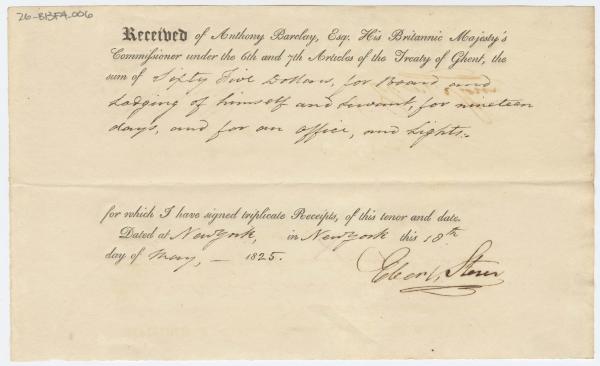 26-B13F4-006
Received of Anthony Barclay, Esq. His Britannic Majesty's
Commissioner under the 6th and 7th Articles of the Treaty of Ghent, the
sum of Sixty Five Dollars, for Board and
Lodging of himself and Servant, for nineteen
days, and for an office, and Lights.
for which I have signed triplicate Receipts, of this tenor and date.
Dated at New York, in New York this 18th
day of May, — 1825.
Storer